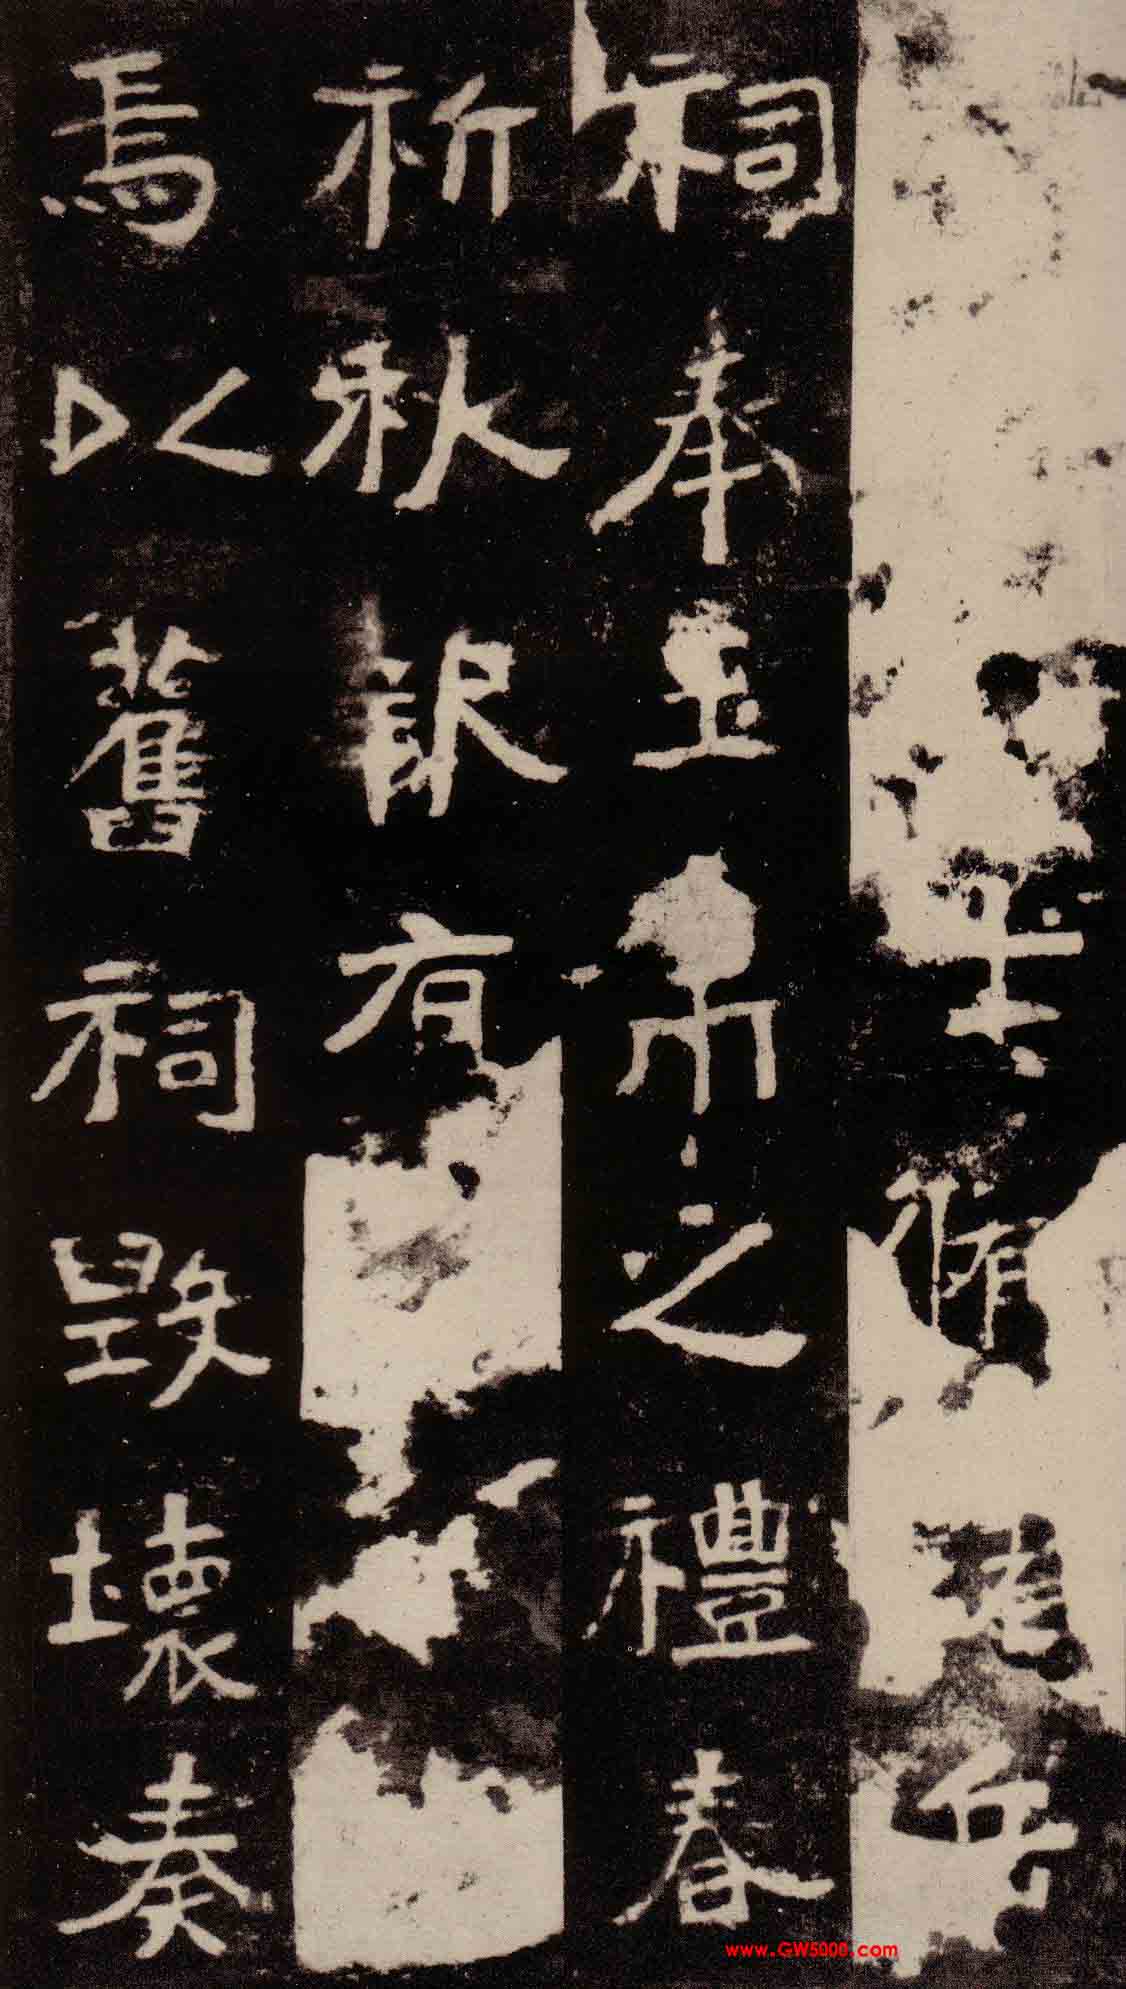 脩岳
祠奉玉帛之禮春
祈秋報有
焉以舊祠毀壞奏
www.GW5000.com